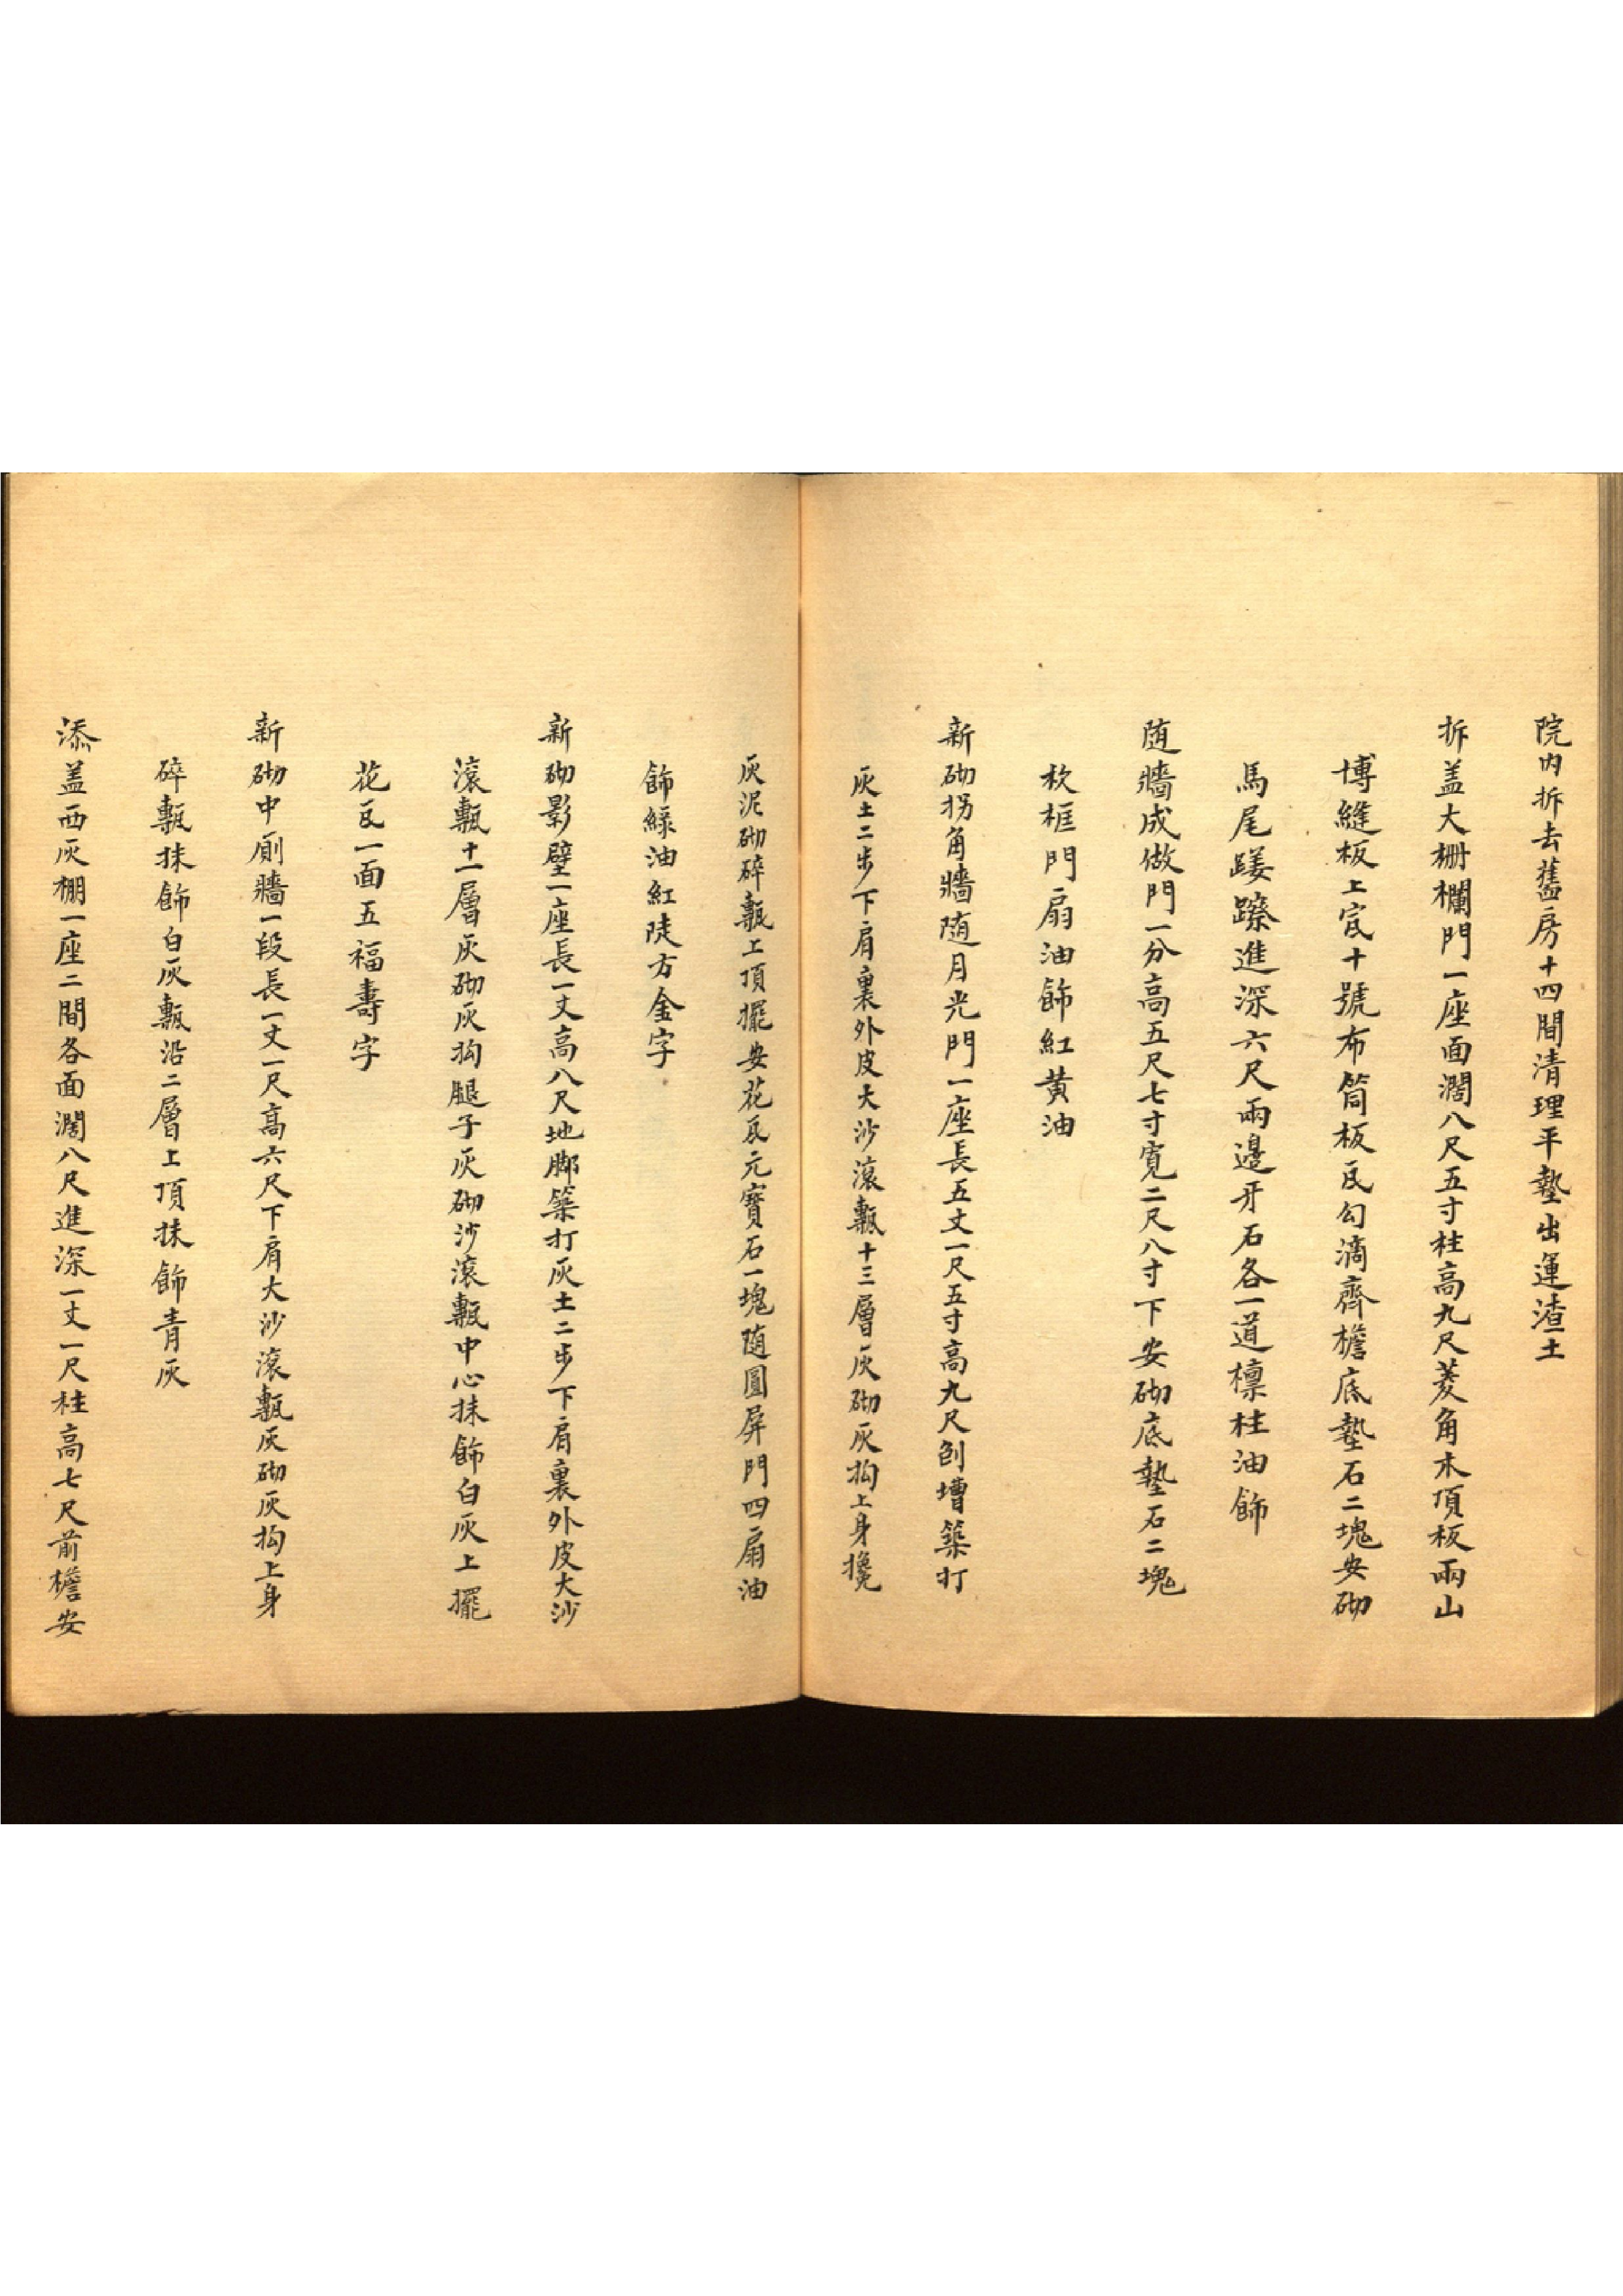 院內拆去舊房十四間清理平墊出運渣土
拆盖大柵欄門一座面濶八尺五寸柱高九尺菱角木頂板兩山
博縫板上宽十號布筒板瓦勾滴齊檐底墊石二塊安砌
馬尾䠛蹽進深六尺兩邊牙石各一道檩柱油飾
随牆成做門一分高五尺七寸寬二尺八寸下安砌底墊石二塊
杴框門扇油飾紅黄油
新砌拐角牆随月光門一座長五丈一尺五寸高九尺刨墁築打
灰土二步下肩裏外皮大沙滚甎十三層灰砌灰抅上身攙
灰泥砌碎甎上頂擺安花瓦元寳石一塊随圓屏門四扇油
飾緑油紅陡方金字
新砌影壁一座長一丈高八尺地脚築打灰土二步下肩裏外皮大沙
滚甎十一層灰砌灰抅腿子灰砌沙滚甎中心抹飾白灰上擺
花瓦一面五福壽字
新砌中廁牆一段長一丈一尺髙六尺下肩大沙滚甎灰砌灰抅上身
碎甎抹飾白灰甎沿二層上頂抹飾青灰
添盖西灰棚一座二間各面濶八尺進深一丈一尺柱高七尺前檐安